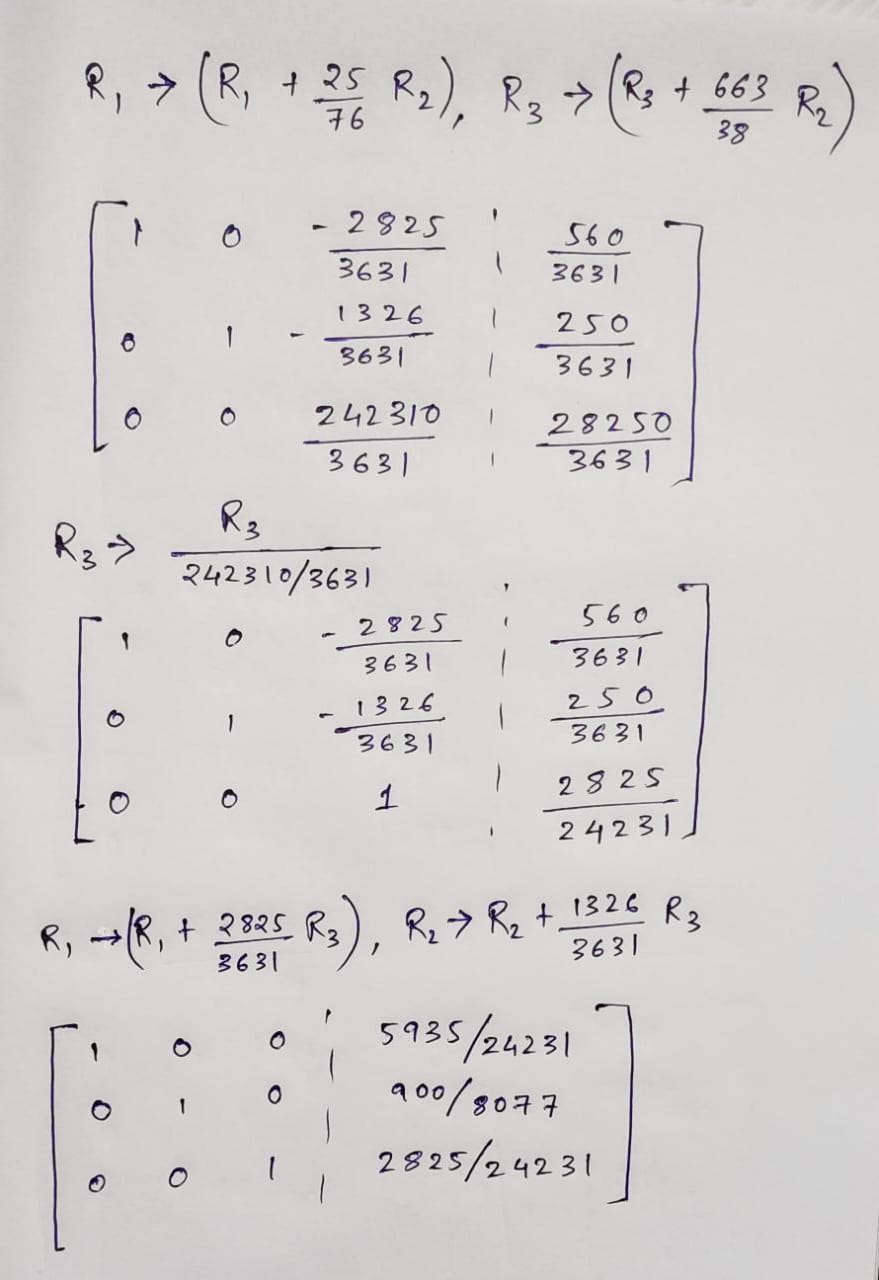 R₁ → (R₁ + 25/76 R₂), R₃ → (R₃ + 663/38 R₂)
[ 1 0 -2825/3631 ¦ 560/3631 ]
[ 0 1 -1326/3631 ¦ 250/3631 ]
[ 0 0 242310/3631 ¦ 28250/3631 ]
R₃ → R₃ / (242310/3631)
[ 1 0 -2825/3631 ¦ 560/3631 ]
[ 0 1 -1326/3631 ¦ 250/3631 ]
[ 0 0 1 ¦ 2825/24231 ]
R₁ → (R₁ + 2825/3631 R₃), R₂ → R₂ + 1326/3631 R₃
[ 1 0 0 ¦ 5935/24231 ]
[ 0 1 0 ¦ 900/8077 ]
[ 0 0 1 ¦ 2825/24231 ]